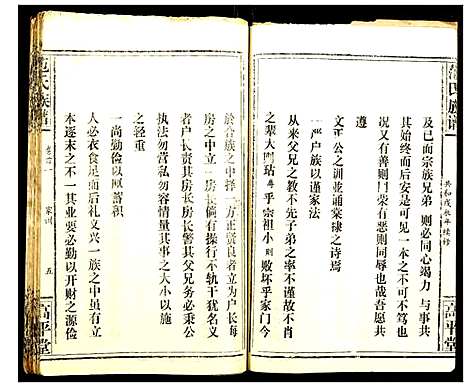 范氏族谱
共和戊
续修
高平堂
及已而宗族兄弟 则必同心竭力 与事共
其始终而无不善矣 是可大可久可继可
也有善则门荣有恶则同辱岂不戒哉吾愿共
遵
文正公之训並诵棠棣之诗焉
一严户族以谨家法
从来父兄之教不先子弟之率不谨故不肖
之辈大则玷乎宗祖小则败坏乎家门今
於合族之中择一方正贤良者立为户长每
房之中立一房长倘有操行不轨干犯名义
者户长责其房长房长责其父兄务必秉公
执法勿营私勿容情量其事之大小以施
之轻重
一尚勤俭以厚蓄积
人必衣食足而后礼义兴一族之中虽有立
本逐末之不一其业要必勤以开财之源俭
范氏族谱
家训
五
高平堂